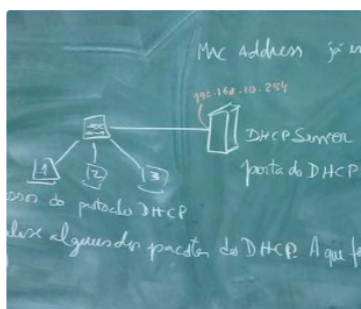 Mac Address já
192.168.10.254
DHCP Server
porta do DHCP
1 2 3
do protocolo DHCP
alguns dos pacotes do DHCP. A que